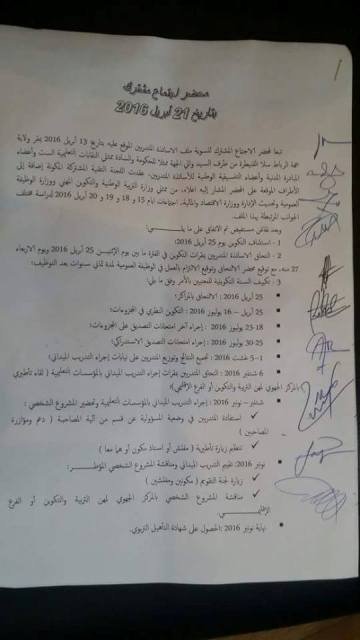 محضر اجتماع مشترك
بتاريخ 21 أبريل 2016
تبعا لمحضر الاجتماع المشترك لتسوية ملف الاساتذة المتدربين الموقع عليه بتاريخ 13 أبريل 2016 بمقر ولاية
جهة الرباط سلا القنيطرة من طرف السيد والي الجهة ممثلا للحكومة والسادة ممثلي النقابات التعليمية الست وأعضاء
المبادرة المدنية وأعضاء التنسيقية الوطنية للأساتذة المتدربين، عقدت اللجنة التقنية المشتركة المكونة إضافة إلى
الأطراف الموقعة على المحضر المشار إليه اعلاه، من ممثلي وزارة التربية الوطنية والتكوين المهني ووزارة الوظيفة
العمومية وتحديث الإدارة ووزارة الاقتصاد والمالية، اجتماعات ايام 15 و 18 و 19 و 20 أبريل 2016 لدراسة مختلف
الجوانب المرتبطة بهذا الملف.
وبعد نقاش مستفيض تم الاتفاق على ما يلي:
1 - استئناف التكوين يوم 25 أبريل 2016؛
2 - التحاق الاساتذة المتدربين بمقرات التكوين في الفترة ما بين يوم الإثنين 25 أبريل 2016 ويوم الاربعاء
27 منه، مع توقيع محضر الالتحاق وتوقيع الالتزام بالعمل في الوظيفة العمومية لمدة ثماني سنوات بعد التوظيف؛
3 - تكييف السنة التكوينية للمعنيين بالأمر وفق ما يلي:
▪ 25 أبريل 2016: الالتحاق بالمراكز؛
▪ 25 أبريل - 16 يوليوز 2016: التكوين النظري في المجزوءات؛
▪ 18-23 يوليوز 2016: إجراء آخر امتحانات التصديق على المجزوءات؛
▪ 25-30 يوليوز 2016: إجراء امتحانات التصديق الاستدراكي؛
▪ 1-5 غشت 2016: تجميع النتائج وتوزيع المتدربين على نيابات إجراء التدريب الميداني؛
▪ 6 شتنبر 2016: التحاق المتدربين بمقرات إجراء التدريب الميداني بالمؤسسات التعليمية (لقاء تأطيري
بالمركز الجهوي لمهن التربية والتكوين أو الفرع الإقليمي)
▪ شتنبر - نونبر 2016: إجراء التدريب الميداني بالمؤسسات التعليمية وتحضير المشروع الشخصي:
✓ استفادة المتدربين في وضعية المسؤولية عن قسم من آلية المصاحبة (دعم ومؤازرة
المصاحبين)
✓ تنظيم زيارة تأطيرية (مفتش أو استاذ مكون أو هما معا)
▪ نونبر 2016: تقييم التدريب الميداني ومناقشة المشروع الشخصي المؤطر:
✓ زيارة لجنة التقويم (مكونين ومفتشين)
✓ مناقشة المشروع الشخصي بالمركز الجهوي لمهن التربية والتكوين أو الفرع
الإقليمي
▪ نهاية نونبر 2016: الحصول على شهادة التأهيل التربوي.